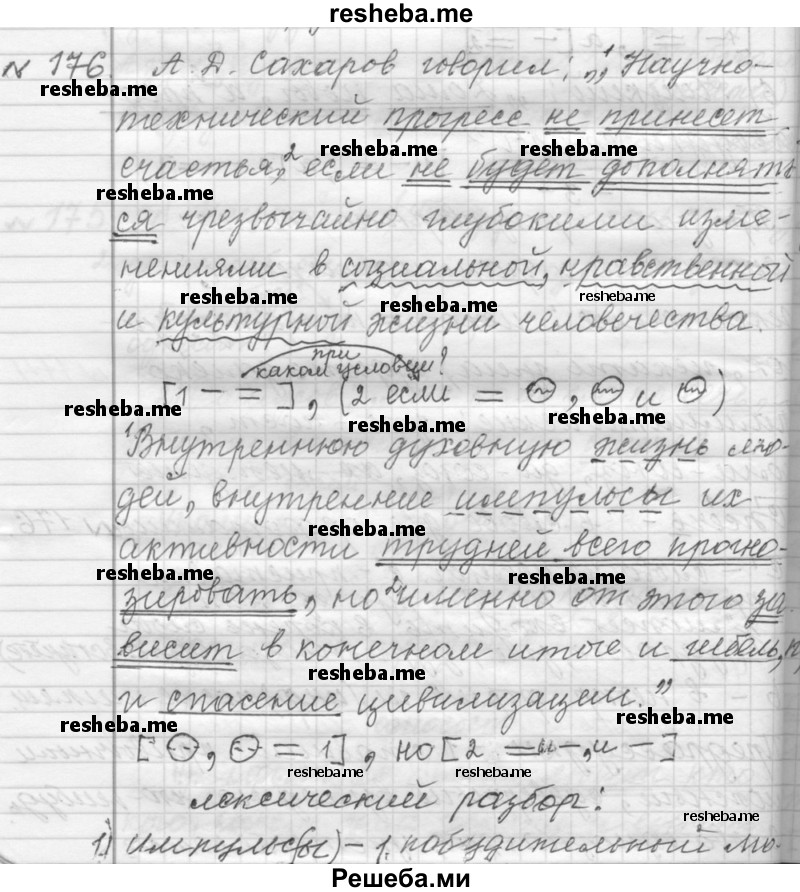 resheba.me
№ 176. А. Д. Сахаров говорил: „¹ Научно-
resheba.me
технический прогресс не принесет
resheba.me resheba.me
счастья,² если не будет дополнять
resheba.me
ся чрезвычайно глубокими изме-
resheba.me
нениями в социальной, нравственной
resheba.me resheba.me
и культурной жизни человечества.
при
каком условии?
[1 — = ], (2 если = ⊝, ⊝ и ⊝)
resheba.me resheba.me resheba.me
¹Внутреннюю духовную жизнь лю-
дей, внутренние импульсы их
resheba.me
активности трудней всего прогно-
resheba.me resheba.me
зировать, но ²именно от этого за-
висит в конечном итоге и гибель,
resheba.me
и спасение цивилизации."
resheba.me resheba.me
[⊝, ⊝ = 1], но [2 = и —, и —]
resheba.me resheba.me
лексический разбор:
resheba.me
1) импульс(ы) – 1. побудительный мо-
Решеба.ми